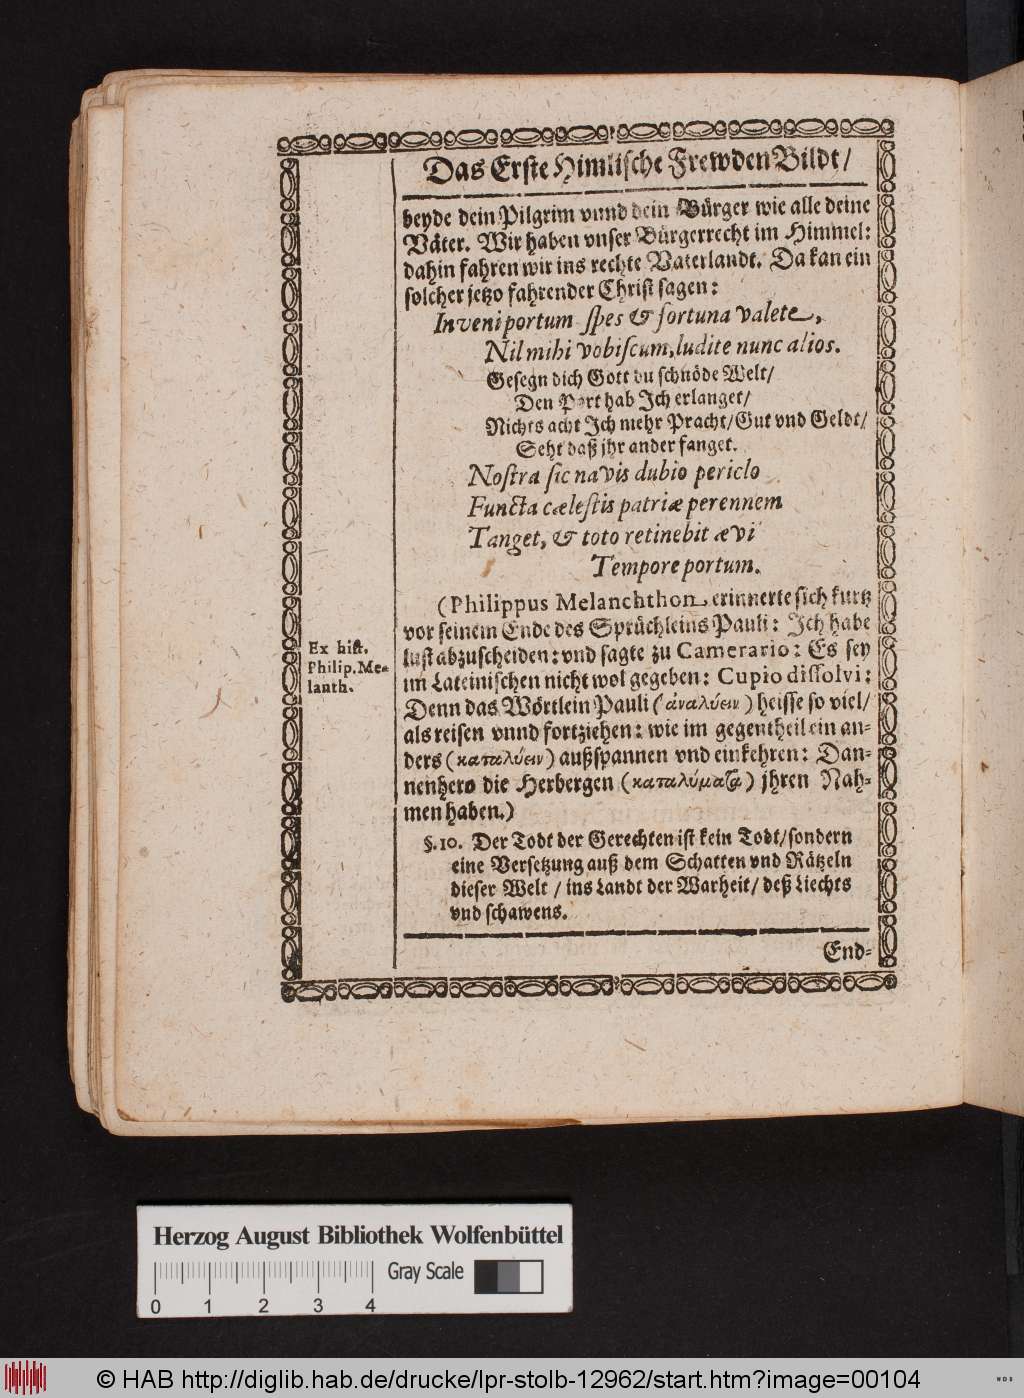 Das Erste Himlische Frewden Bildt/
beyde dein Pilgrim vnnd dein Bürger wie alle deine
Väter. Wir haben vnser Bürgerrecht im Himmel:
dahin fahren wir ins rechte Vaterlandt. Da kan ein
solcher jetzo fahrender Christ sagen:
Inveni portum spes & fortuna valete,
Nil mihi vobiscum, ludite nunc alios.
Gesegn dich Gott du schnöde Welt/
Den Port hab Ich erlanget/
Nichts acht Ich mehr Pracht/Gut vnd Geldt/
Seht daß jhr ander fanget.
Nostra sic navis dubio periclo
Functa cælestis patriæ perennem
Tanget, & toto retinebit ævi
Tempore portum.
(Philippus Melanchthon erinnerte sich kurtz
vor seinem Ende des Sprüchleins Pauli: Ich habe
lust abzuscheiden: vnd sagte zu Camerario: Es sey
im Lateinischen nicht wol gegeben: Cupio dissolvi:
Denn das Wörtlein Pauli (ἀναλύειν) heisse so viel/
als reisen vnnd fortziehen: wie im gegentheil ein an-
ders (καταλύειν) außspannen vnd einkehren: Dan-
nenhero die Herbergen (καταλύματα) jhren Nah-
men haben.)
Ex hist.
Philip. Me-
lanth.
§. 10. Der Todt der Gerechten ist kein Todt/sondern
eine Versetzung auß dem Schatten vnd Rätzeln
dieser Welt / ins Landt der Warheit/ deß Liechts
vnd schawens.
End-
Herzog August Bibliothek Wolfenbüttel
Gray Scale
0 1 2 3 4
© HAB http://diglib.hab.de/drucke/lpr-stolb-12962/start.htm?image=00104